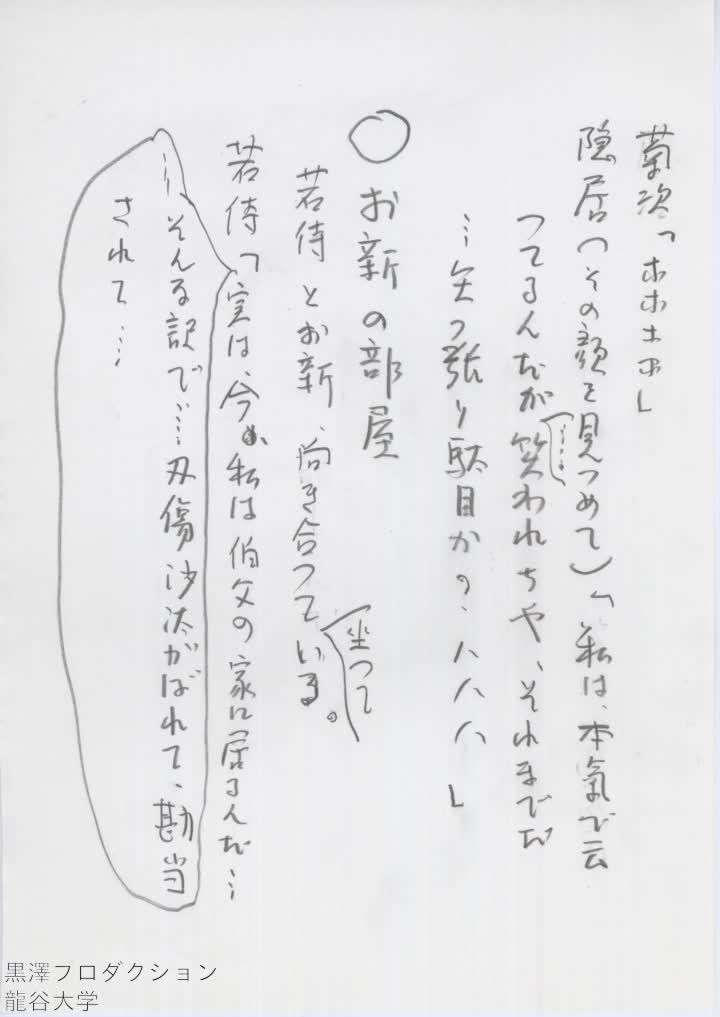 菊次「ホホホホ」
隠居(その顔を見つめて)「私は、本氣で云
つてるんだが……笑われちや、それまでだ
…矢つ張り駄目かの、ハハハ」
○お新の部屋
若侍とお新、向き合つて坐つている。
若侍「実は、今、私は伯父の家に居るんだ…
…そんな訳で……刃傷沙汰がばれて、勘当
されて…
黒澤プロダクション
龍谷大学